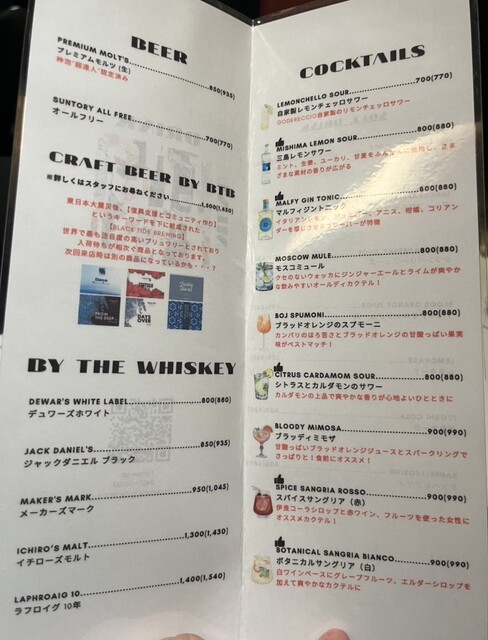 BEER
PREMIUM MOLT'S 850(935)
プレミアムモルツ (生)
神泡"超達人"認定済み
SUNTORY ALL FREE 700(770)
オールフリー
CRAFT BEER BY BTB
※詳しくはスタッフにお尋ねください 1,500(1,650)
東日本大震災後、【復興支援とコミュニティ作り】
というキーワードを下に結成された
【BLACK TIDE BREWING】
世界で最も注目度の高いブリュワリーとされており
入荷待ちが相次ぐ商品となっております。
次回来店時は別の商品になっているかも・・・?
BY THE WHISKEY
DEWAR'S WHITE LABEL 800(880)
デュワーズホワイト
JACK DANIEL'S 850(935)
ジャックダニエル ブラック
MAKER'S MARK 950(1,045)
メーカーズマーク
ICHIRO'S MALT 1,300(1,430)
イチローズモルト
LAPHROAIG 10 1,400(1,540)
ラフロイグ 10年
COCKTAILS
LEMONCHELLO SOUR 700(770)
自家製レモンチェッロサワー
GODERECCIO自家製のリモンチェッロサワー
MISHIMA LEMON SOUR 800(880)
三島レモンサワー
ミント、生姜、ユーカリ、甘夏をふんだんに使用し、さま
ざまな素材の香りが広がる
MALFY GIN TONIC 800(880)
マルフィジントニック
イタリアンレモン、ジュニパー、アニス、柑橘、コリアン
ダーを感じさせるフレーバーが特徴
MOSCOW MULE 800(880)
モスコミュール
クセのないウォッカにジンジャーエールとライムが爽やか
な飲みやすいオールディカクテル!
BOJ SPUMONI 800(880)
ブラッドオレンジのスプモーニ
カンパリのほろ苦さとブラッドオレンジの甘酸っぱい果実
味がベストマッチ!
CITRUS CARDAMOM SOUR 800(880)
シトラスとカルダモンのサワー
カルダモンの上品で爽やかな香りが心地よいひとときに
BLOODY MIMOSA 900(990)
ブラッディミモザ
甘酸っぱいブラッドオレンジジュースとスパークリングで
さっぱりと!食前にオススメ!
SPICE SANGRIA ROSSO 900(990)
スパイスサングリア(赤)
伊良コーラシロップと赤ワイン、フルーツを使った女性に
オススメカクテル!
BOTANICAL SANGRIA BIANCO 900(990)
ボタニカルサングリア(白)
白ワインベースにグレープフルーツ、エルダーシロップを
加えて爽やかなカクテルに